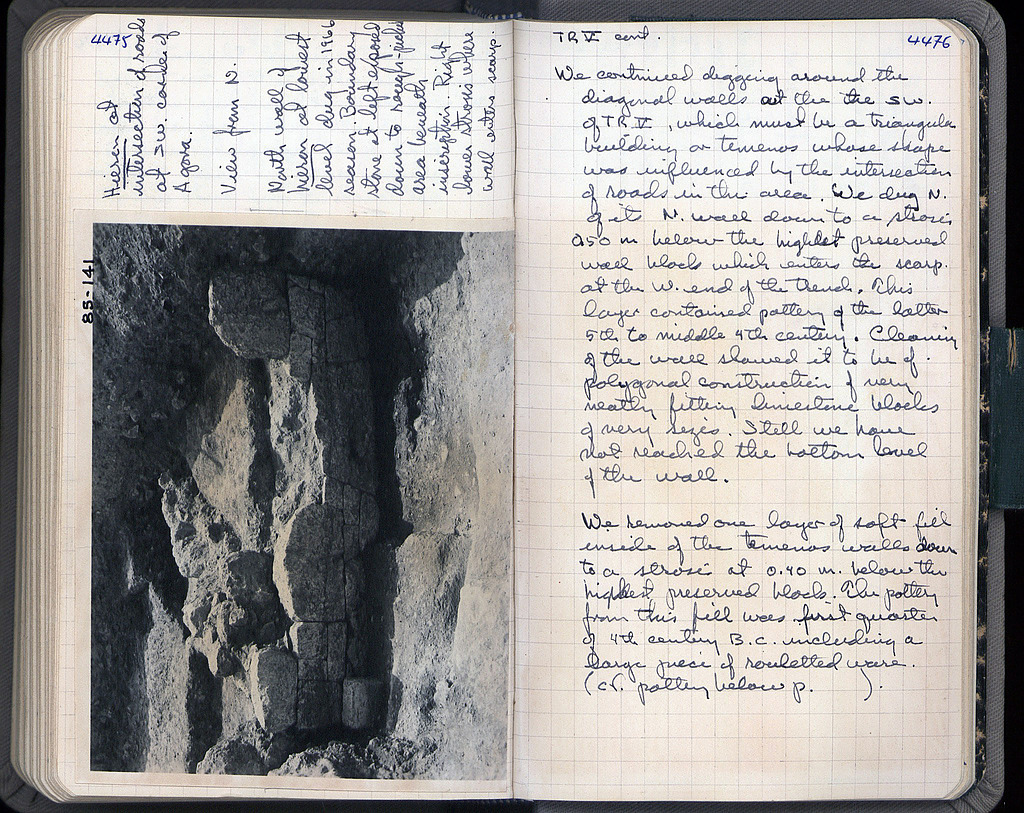 4475
Hieron at
intersection of roads
at SW. corner of
Agora.
View from N.
North wall of
heron at lowest
level dug in 1966
season. Boundary
stone at left exposed
down to rough-picked
area beneath
inscription. Right
lower strosis where
wall enters scarp.
85-141
4476
TR V cont.
We continued digging around the
diagonal walls at the the SW.
of TR V, which must be a triangular
building or temenos whose shape
was influenced by the intersection
of roads in the area. We dug N.
of its N. wall down to a strosis
0.50 m below the highest preserved
wall block which enters the scarp
at the W. end of the trench. This
layer contained pottery of the latter
5th to middle 4th century. Cleaning
of the wall showed it to be of
polygonal construction of very
neatly fitting limestone blocks
of very sizes. Still we have
not reached the bottom level
of the wall.
We removed one layer of soft fill
inside of the temenos walls down
to a strosis at 0.40 m. below the
highest preserved block. The pottery
from this fill was first quarter
of 4th century B.C. including a
large piece of rouletted ware.
(cf. pottery below p. ).